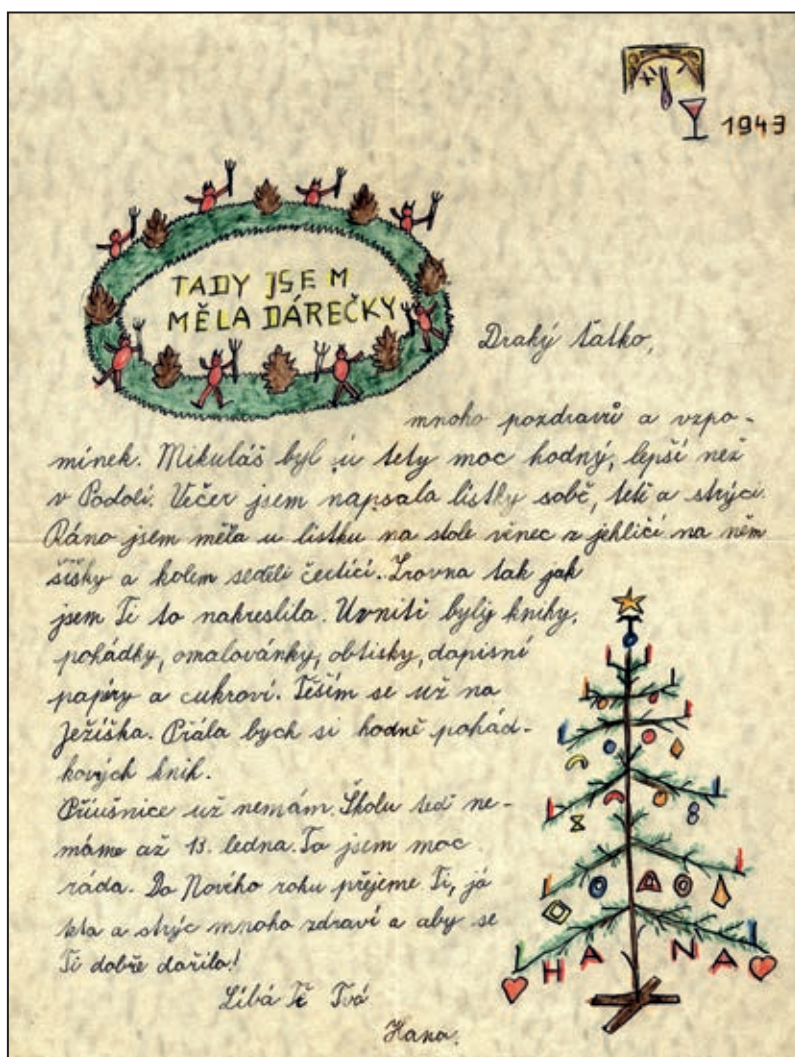 XI
1943
TADY JSEM
MĚLA DÁREČKY
Drahý taťko,
mnoho pozdravů a vzpo-
mínek. Mikuláš byl u tety moc hodný, lepší než
v Podolí. Večer jsem napsala lístky sobě, tetě a strýci.
Ráno jsem měla u lístku na stole věnec z jehličí na něm
šišky a kolem seděli čertíci. Zrovna tak jak
jsem Ti to nakreslila. Uvnitř byly knihy,
pohádky, omalovánky, obtisky, dopisní
papíry a cukroví. Těším se už na
Ježíška. Přála bych si hodně pohád-
kových knih.
Příušnice už nemám. Školu teď ne-
máme až 13. ledna. To jsem moc
ráda. Do Nového roku přejeme Ti, já
teta a strýc mnoho zdraví a aby se
Ti dobře dařilo!
Líbá Tě Tvá
Hana.
HANA